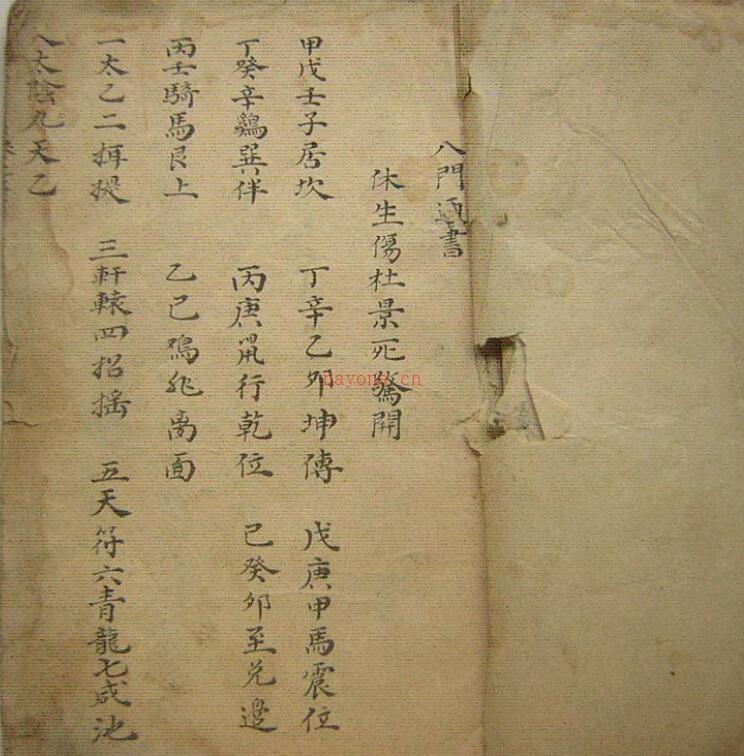 八門通書
休生傷杜景死驚開
甲戊壬子居坎 丁辛乙卯坤傳 戊庚甲馬震位
丁癸辛鷄巽伴 丙庚鼠行乾位 己癸卯至兌邊
丙壬騎馬艮上 乙己鳮飛离面
一太乙二摂提 三軒轅四招摇 五天符六青龍七咸池
八太陰九天乙
nayona.cn